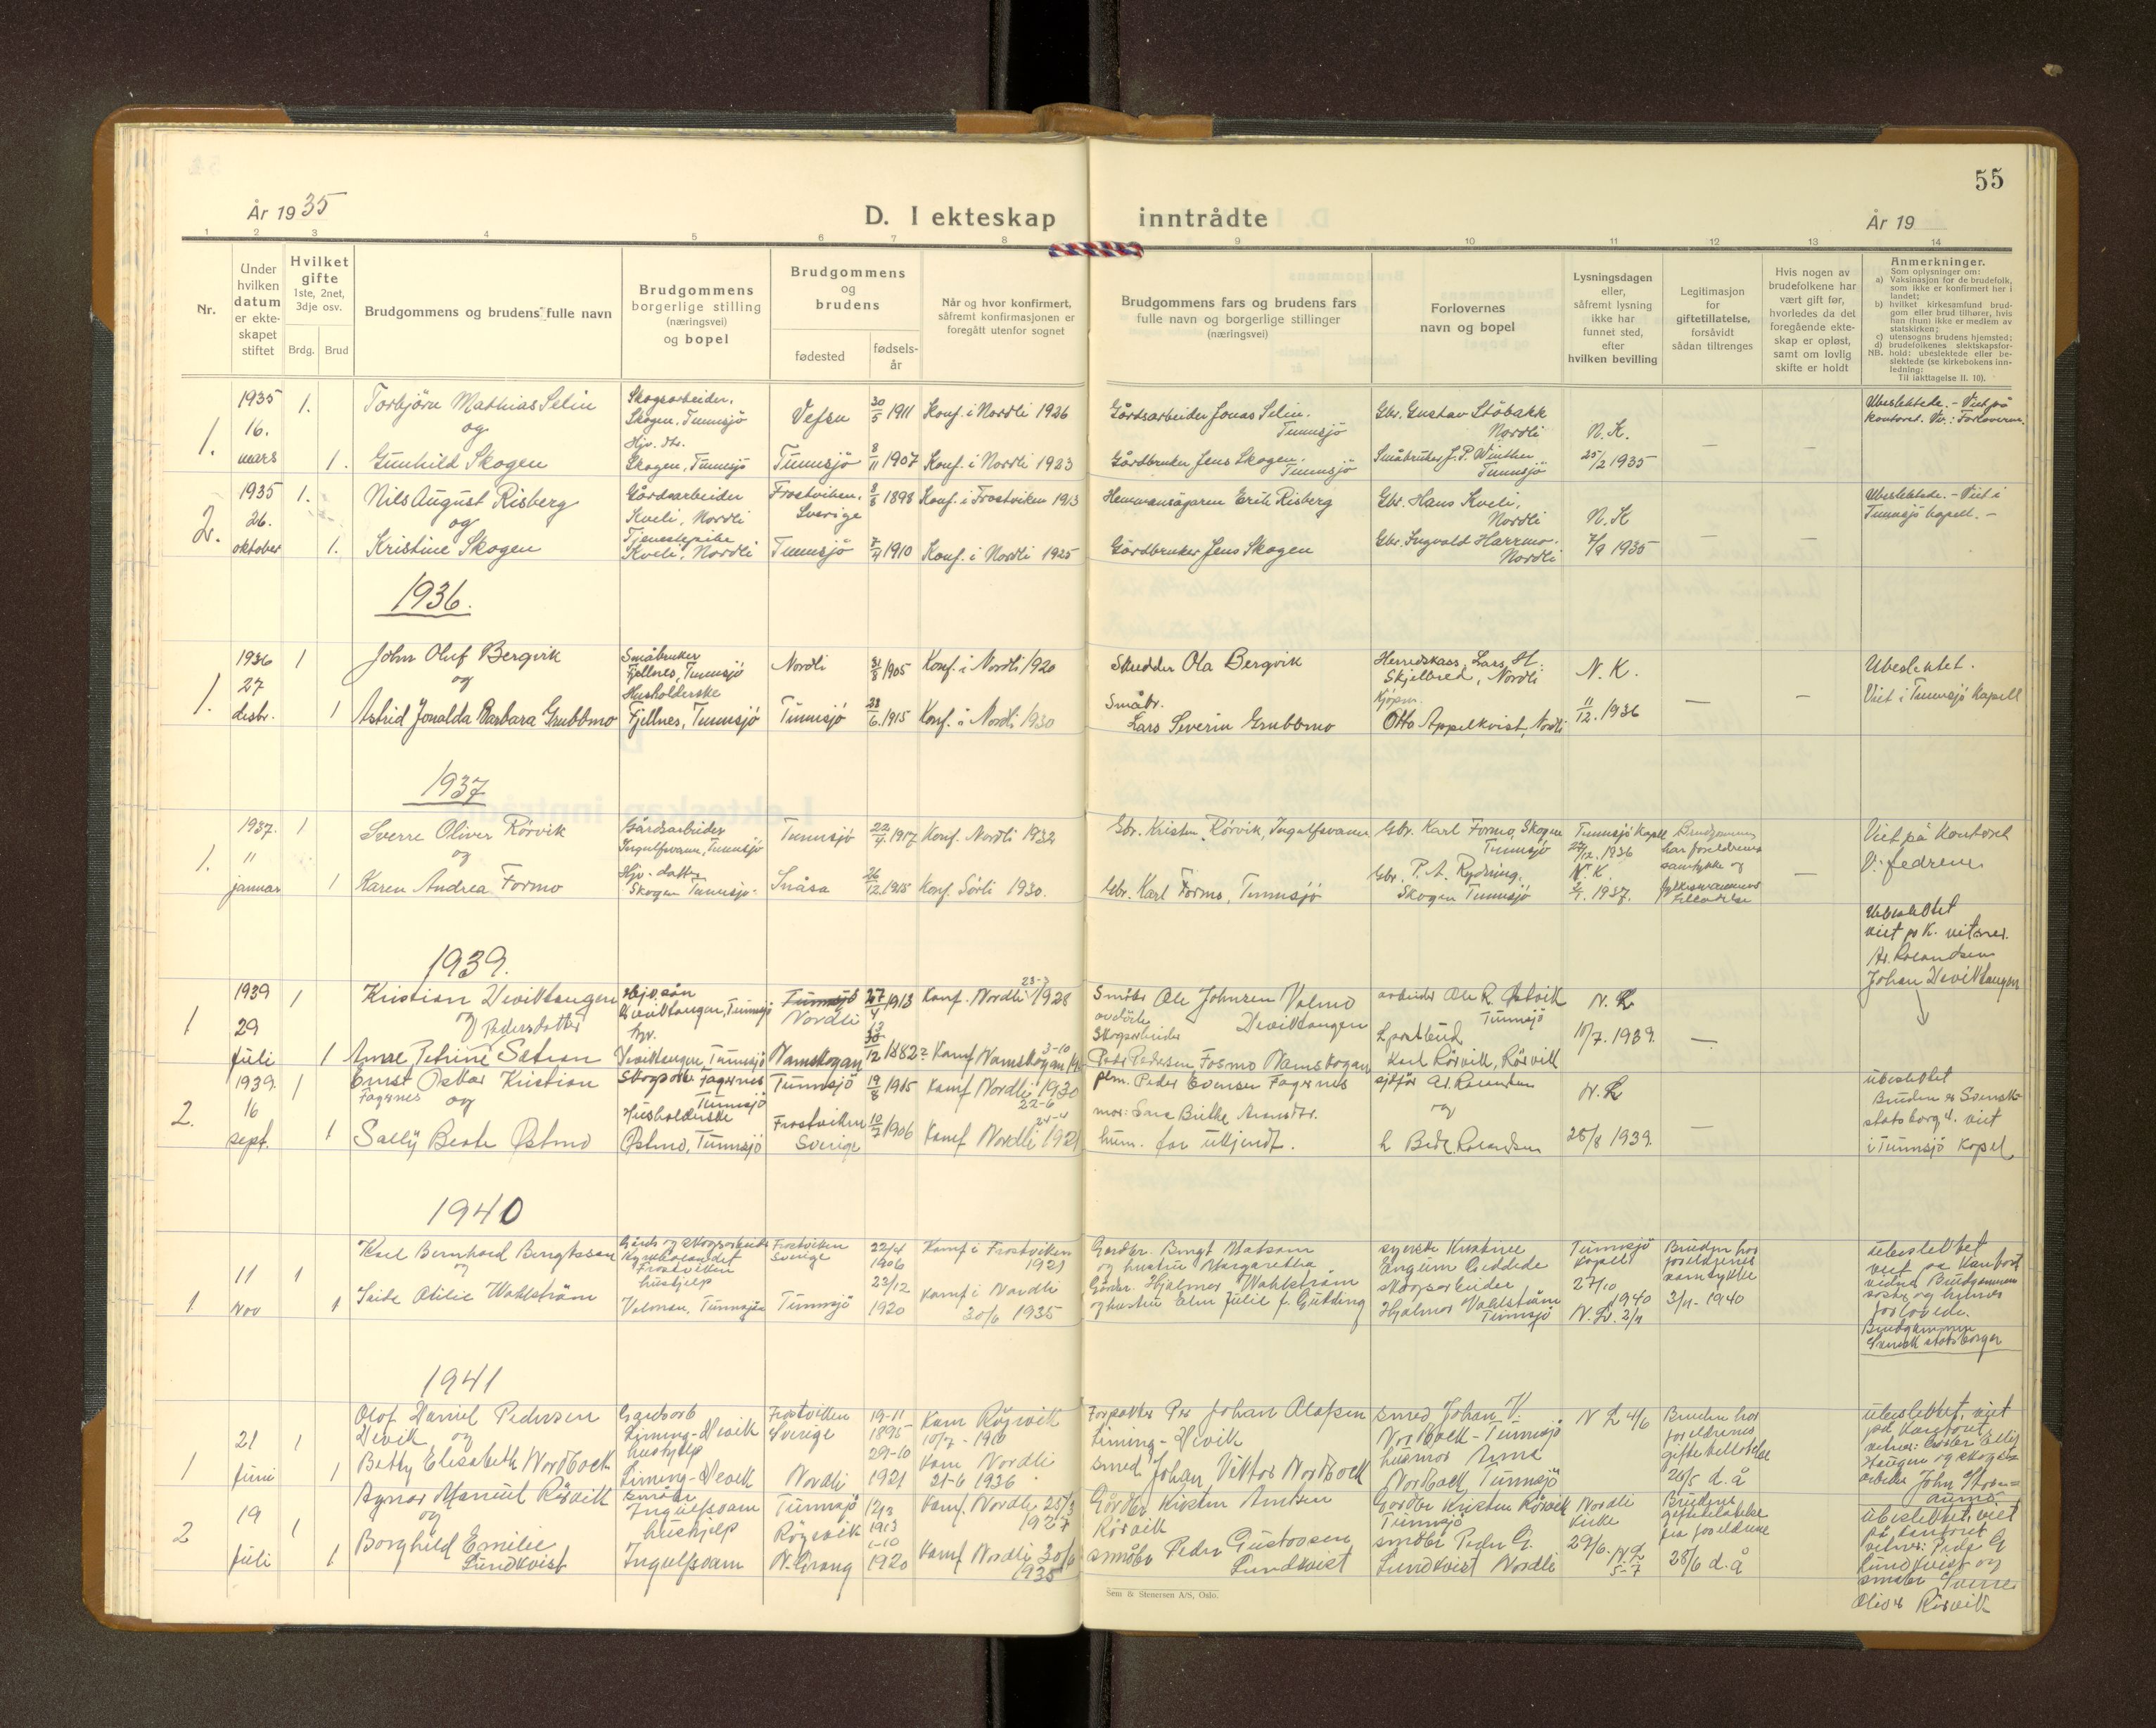 55
År 1935
D. I ekteskap inntrådte
År 19
1 2 3 4 5 6 7 8 9 10 11 12 13 14
Nr.
Under hvilken datum er ekteskapet stiftet
Hvilket gifte
1ste, 2net, 3dje osv.
Brdg. Brud
Brudgommens og brudens fulle navn
Brudgommens borgerlige stilling (næringsvei) og bopel
Brudgommens og brudens
fødested
fødselsår
Når og hvor konfirmert, såfremt konfirmasjonen er foregått utenfor sognet
Brudgommens fars og brudens fars fulle navn og borgerlige stillinger (næringsvei)
Forlovernes navn og bopel
Lysningsdagen eller, såfremt lysning ikke har funnet sted, efter hvilken bevilling
Legitimasjon for giftetillatelse, forsåvidt sådan tiltrenges
Hvis nogen av brudefolkene har vært gift før, hvorledes da det foregående ekteskap er opløst, samt om lovlig skifte er holdt
Anmerkninger.
Som oplysninger om:
a) Vaksinasjon for de brudefolk, som ikke er konfirmert her i landet;
b) hvilket kirkesamfund brudgom eller brud tilhører, hvis han (hun) ikke er medlem av statskirken;
c) utensogns brudens hjemsted;
d) brudefolkenes slektskapsforhold: ubeslektede eller beslektede (se kirkebokens innledning;
NB. Til iakttagelse II. 10).
1. 1935 16. mars 1. Torbjörn Mathias Selin Skogsarbeider, Skogen, Tunnsjö Vefsn 30/5 1911 Konf. i Nordli 1926 Gårdsarbeider Jonas Selin. Tunnsjö Gbr. Gustav Støbakk Nordli N.K. 25/2 1935 — — Ubeslektede. - Viet på kontoret. Vv.: Forloverne.
og
1. Gunhild Skogen Hjv. dtr. Skogen, Tunnsjö Tunnsjö 8/11 1907 Konf. i Nordli 1923 Gårdbruker Jens Skogen. Tunnsjö Småbruker J. P. Winther Tunnsjö
2. 1935 26. oktober 1. Nils August Risberg Gårdsarbeider Kveli, Nordli Frostviken, Sverige 8/8 1898 Konf. i Frostviken 1913 Hemmansägaren Erik Risberg Gbr. Hans Kveli, Nordli N.K 7/9 1935 — — Ubeslektede. - Viet i Tunnsjö kapell. -
og
1. Kristine Skogen Tjenestepike Kveli, Nordli Tunnsjö 7/4 1910 Konf. i Nordli 1925 Gårdbruker Jens Skogen Gbr. Ingvald Harrmo. Nordli
1936.
1. 1936 27 desbr. 1 John Oluf Bergvik Småbruker Fjellnes, Tunnsjö Nordli 31/8 1905 Konf. i Nordli 1920 Skredder Ola Bergvik Herredskass. Lars H. Skjelbred, Nordli N.K. 11/12. 1936 — — Ubeslektet. Viet i Tunnsjö Kapell
og
1 Astrid Jonalda Barbara Grubbmo Husholderske Fjellnes, Tunnsjö Tunnsjö 28/6. 1915 Konf. i Nordli 1930 Småbr. Lars Severin Grubbmo Kjøpm. Otto Appelkvist, Nordli
1937
1. 1937. 11 januar 1 Sverre Oliver Rörvik Gårdsarbeider Ingulfsvann, Tunnsjö Tunnsjö 22/4. 1917 Konf. Nordli 1932 Gbr. Kristen Rörvik, Ingulfsvann Gbr. Karl Formo, Skogen Tunnsjö Tunnsjö Kapell 27/12. 1936 Brudgommen har foreldrenes samtykke og fylkesmannens tillatelse — Viet på kontoret V: fedrene
og
1 Karen Andrea Formo Hjv. datter Skogen Tunnsjö. Snåsa 26/12. 1915 Konf. Sörli 1930. Gbr. Karl Formo, Tunnsjö Gbr. P. A. Rydning. Skogen Tunnsjö N.K. 2/1. 1937. Ubeslektet
1939.
1 1939 29 Juli 1 Kristian Deviktangen Hjv. sön Deviktangen, Tunnsjö Nordli 27/4 1913 Konf. Nordli 23-3 1928 Småbr Ole Johnsen Valmo Deviktangen arbeider Ole R. Østvik Tunnsjö N. L 10/7. 1939. — viet på k. vitner. Ar. Rolandsen Johan Deviktangen
og
1 Anne Petrine Sætran Pedersdatter hv. Deviktangen Tunnsjö Namskogan 1882 Konf Namskogan 3-10 avdöde Skogsarbeider Peder Pedersen Fosmo Namskogan Karl Rörvik, Rörvik
2. 1939. 16 sept. 1 Ernst Oskar Kristian Fagernes Skogsarb. Fagernes Tunnsjö Tunnsjö 19/8 1905 Konf Nordli 1920 22-6 Peder Evensen Fagernes sjåför Ar. Rolandsen N. L 25/8 1939. — ubeslektet Bruden er Svensk statsborg. viet i Tunnsjö Kapel
og
1 Sally Beate Østmo Husholderske Østmo, Tunnsjö Frostviken Sverige 10/7 1906 Konf Nordli 24-4 1921 mor: far ukjendt.
1940
1 11 Nov 1 Karl Bernhard Bengtsson Gårds og skogsarbeider Frostviken Frostviken Sverige 22/4 1906 Konf i Frostviken 1921 Gardbr. Bengt Matsson og hustru Margaretha syerske Kristine Gæddede Tunnsjö Kapell 27/10 1940 Bruden har foreldrenes samtykke 2/11-1940 ubeslektet viet på Kontoret
og
1 Seide Otilie Wahlström hushjelp Valmoen, Tunnsjön Tunnsjö 23/12 1920 Konf i Nordli 30/6 1935 Gårdbr. Hjalmar Wahlström og hustru Elen Julie f. Gutding skogsarbeider Hjalmar Vahlström Tunnsjö Brudgommen Svensk statsborger
1941
1 21 Juni 1 Olof Daniel Pedersen Devik Gardsarb Liming-Devik Frostviken Sverige 19-11 1895 Kom Röyrvik 10/7 - 1910 Forpakter Per Johan Olofsen Liming-Devik smed Johan V. Nordbock - Tunnsjö N L 4/6 Bruden har foreldrenes giftetillatelse 26/5 d. å ubeslektet, viet på Kontoret
og
1 Betty Elisabeth Nordbock hushjelp Liming-Devik Nordli 29-10 1921 Kom Nordli 21-6 1936 smed Johan Viktor Nordbock husmor Anna Nordbock Tunnsjö
2 19 Juli 1 Agnar Manuel Rörvik småbr Ingulfsvam Tunnsjö 12/3 1913 Konf. Nordli 25/3 1927 Gårdbr. Kristen Arntsen Rörvik Gardbr Kristen Rörvik Tunnsjö Nordli Kirke 29/6. Brudens giftetillatelse fra foreldrene 28/6 d. å ubeslektet, viet på kontoret vitner: Peder G Lundkvist og småbr Sverre Oliver Rörvik
og
1 Borghild Emilie Lundkvist hushjelp Ingulfsvam Röyrvik N. Grong 1-10 1920 Konf Nordli 30/6 1935 småbr Peder Gustavsen Lundkvist småbr Peder G. Lundkvist Nordli
Sem & Stenersen A/S, Oslo.